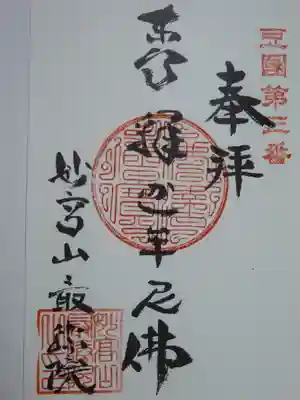 豆國第三番
奉拝
本尊 釋迦牟尼佛
妙高山 最勝院